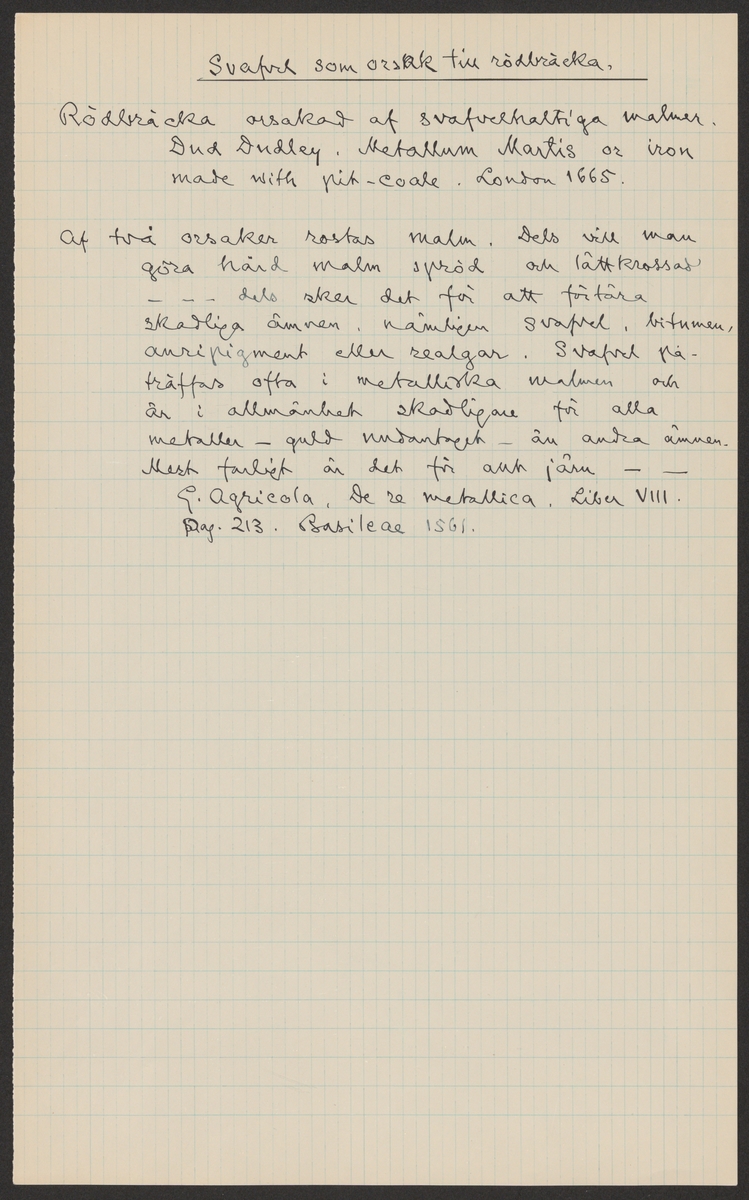 Svafvel som orsak till rödbräcka.
Rödbräcka orsakad af svafvelhaltiga malmer.
Dud Dudley. Metallum Martis or iron
made with pit-coale. London 1665.
Af två orsaker rostas malm. Dels vill man
göra hård malm spröd och lättkrossad
- - - dels sker det för att förtära
skadliga ämnen, nämligen svafvel, bitumen,
auripigment eller realgar. Svafvel på-
träffas ofta i metalliska malmer och
är i allmänhet skadligare för alla
metaller – guld undantaget – än andra ämnen.
Mest farligt är det för allt järn — —
G. Agricola, De re metallica, Liber VIII.
Pag. 213. Basileae 1561.